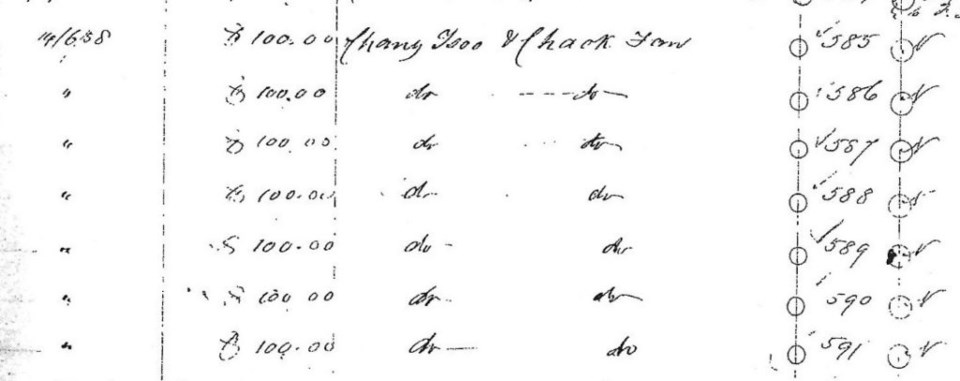 14/6.38 $ 100.00 Chang Tsoo & Chack Fan 585
" $ 100.00 do do 586
" $ 100.00 do do 587
" $ 100.00 do do 588
" $ 100.00 do do 589
" $ 100.00 do do 590
" $ 100.00 do do 591